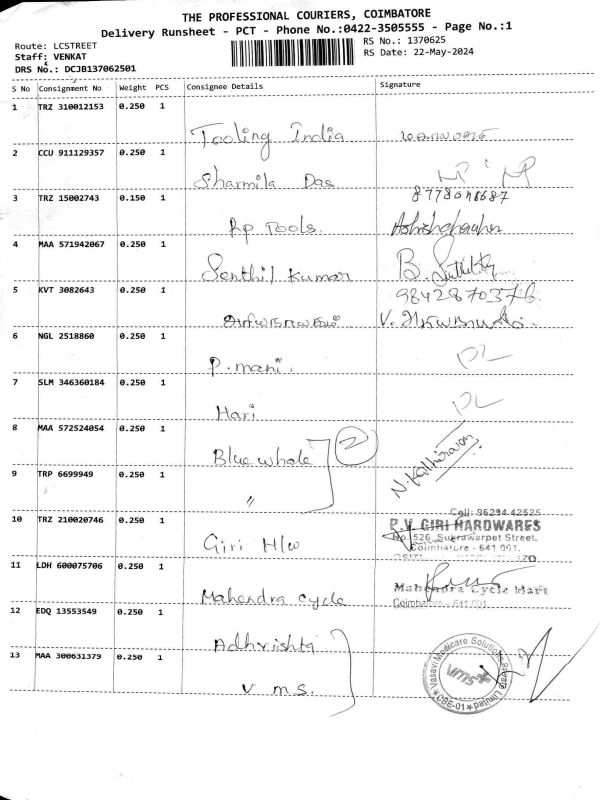 THE PROFESSIONAL COURIERS, COIMBATORE
Delivery Runsheet - PCT - Phone No.:0422-3505555 - Page No.:1
Route: LCSTREET
RS No.: 1370625
Staff: VENKAT
RS Date: 22-May-2024
DRS No.: DCJB137062501
S No Consignment No Weight PCS Consignee Details Signature
1 TRZ 310012153 0.250 1 Tooling India
2 CCU 911129357 0.250 1 Sharmila Das
3 TRZ 15002743 0.150 1 Rp Tools.
4 MAA 571942067 0.250 1 Senthil Kumar B.
9842870376
5 KVT 3082643 0.250 1 V.
6 NGL 2518860 0.250 1 P. mani. DL
7 SLM 346360184 0.250 1 Hari DL
8 MAA 572524054 0.250 1 Blue whale 2 N. Kathiravan
9 TRP 6699949 0.250 1 "
10 TRZ 210020746 0.250 1 Giri H/w
Cell: 96294 42525
P.V. GIRI HARDWARES
No. 526, Sukrawarpet Street,
Coimbatore - 641 001.
11 LDH 600075706 0.250 1 Mahendra cycle
Mahendra Cycle Mart
Coimbatore - 641 001
12 EDQ 13553549 0.250 1 Adhrishta
13 MAA 300631379 0.250 1 V m s.
Vasavi Medicare Solutions Private Limited
VMS
CBE-01